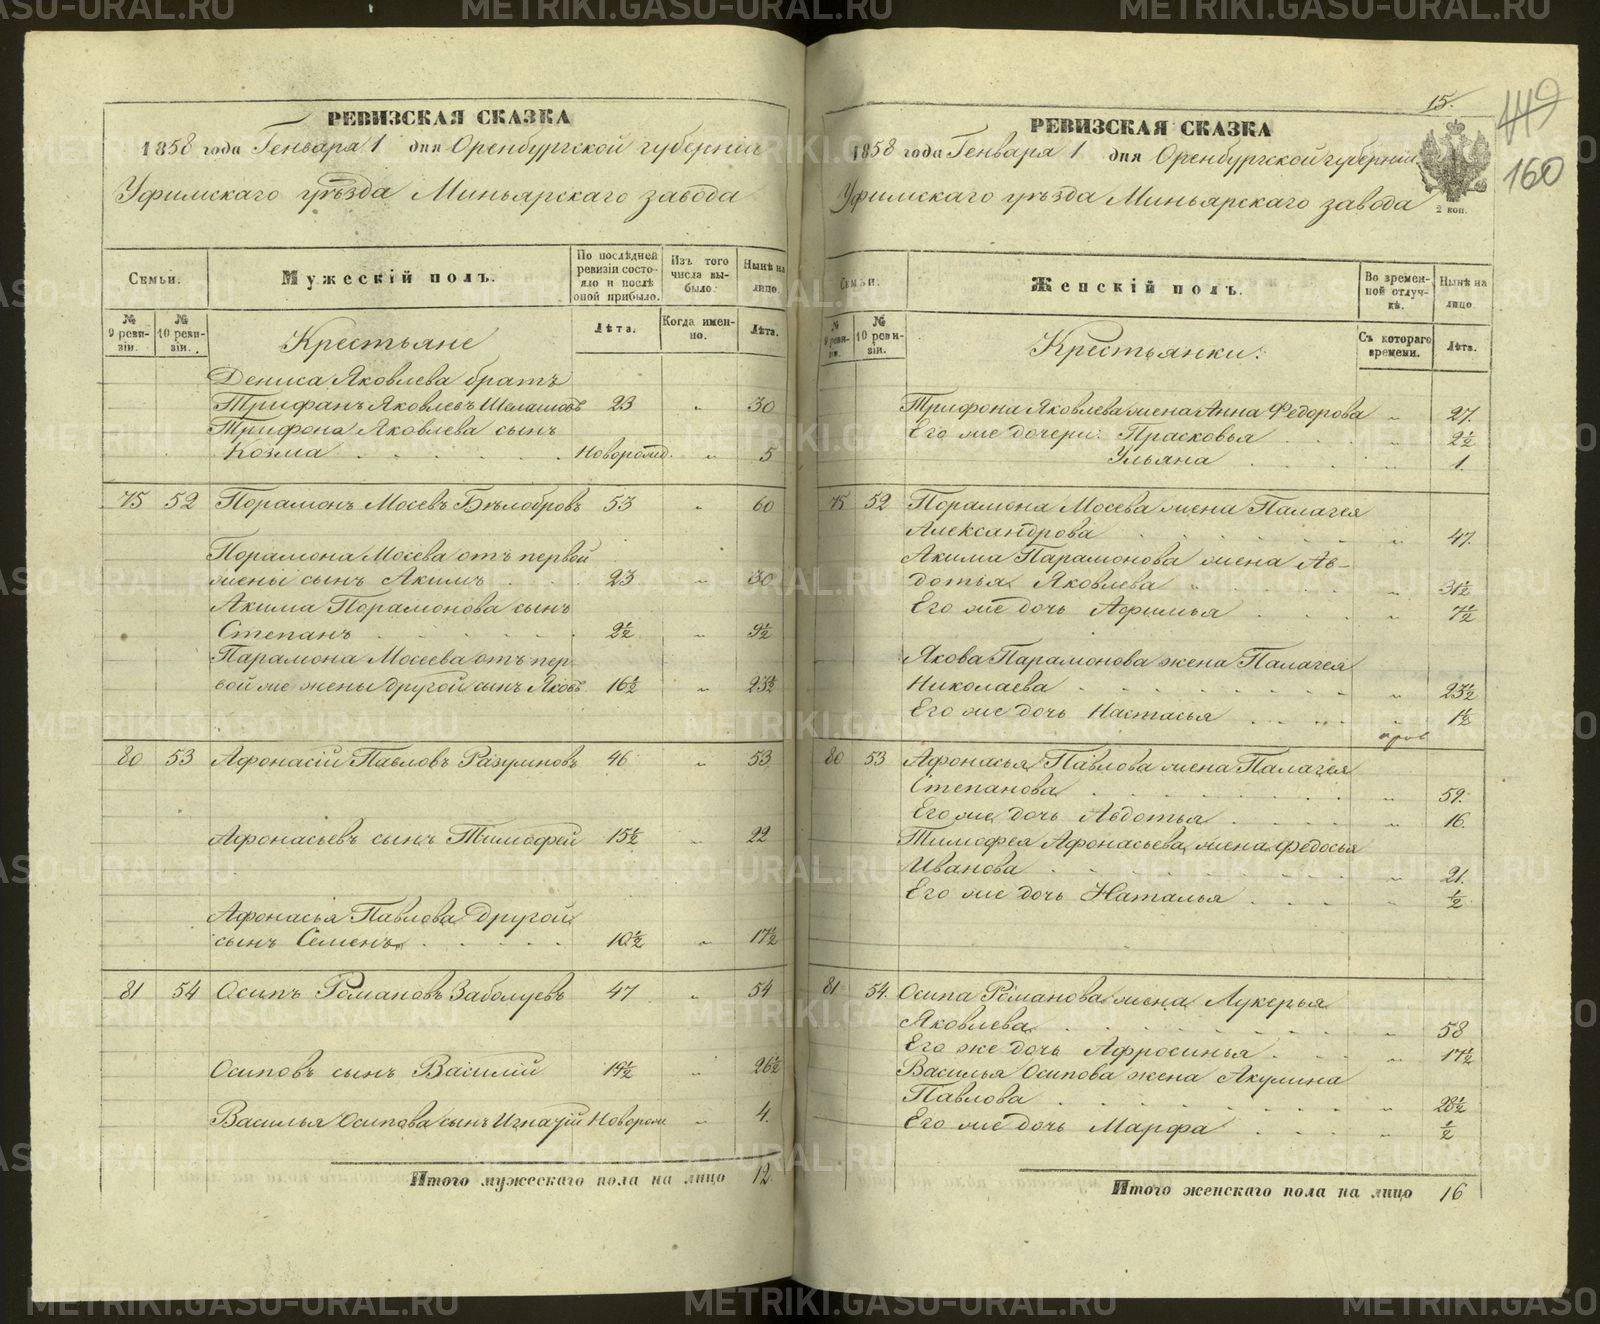 РЕВИЗСКАЯ СКАЗКА
1858 года Генваря 1 дня Оренбургской губернiи
Уфимскаго уѣзда Миньярскаго завода
Семьи.
Мужескiй полъ.
По послѣдней ревизiи состояло и послѣ оной прибыло.
Изъ того числа выбыло.
Нынѣ на лицо.
№ 9 ревизiи.
№ 10 ревизiи.
Крестьяне
Лѣта.
Когда именно.
Лѣта.
Дениса Яковлева братъ
Трифанъ Яковлевъ 23 „ 30
Трифона Яковлева сынъ
Козма Новорожд. „ 5
75 52 Порамонъ Мосевъ Бѣлобровъ 53 „ 60
Порамона Мосева отъ первой
жены сынъ Акимъ 23 „ 30
Акима Порамонова сынъ
Степанъ 2½ „ 9½
Парамона Мосеева отъ пер
вой же жены другой сынъ Яковъ 16½ „ 23½
80 53 Афонасiй Павловъ Разумновъ 46 „ 53
Афонасьевъ сынъ Тимофей 15½ „ 22
Афонасья Павлова другой
сынъ Семенъ 10½ „ 17½
81 54 Осипъ Романовъ Заболуевъ 47 „ 54
Осиповъ сынъ Василiй 19½ „ 26½
Василья Осипова сынъ Игнатiй Новорож „ 4.
Итого мужескаго пола на лицо 12.
15.
449
160
РЕВИЗСКАЯ СКАЗКА
1858 года Генваря 1 дня Оренбургской губернiи
Уфимскаго уѣзда Миньярскаго завода
2 коп.
Семьи.
Женскiй полъ.
Во временной отлучкѣ.
Нынѣ на лицо.
№ 9 ревизiи.
№ 10 ревизiи.
Крестьянки.
Съ котораго времени.
Лѣта.
Трифона Яковлева жена Анна Федорова „ 27.
Его же дочери: Прасковья „ 2½
Ульяна „ 1.
75 52 Порамона Мосева жена Палагея
Александрова „ 47.
Акима Парамонова жена Ав-
дотья Яковлева „ 31½
Его же дочь Афимья „ 7½
Якова Парамонова жена Палагея
Николаева „ 23½
Его же дочь Настасья „ 1½
80 53 Афонасья Павлова жена Палагея
Степанова „ 59.
Его же дочь Авдотья „ 16.
Тимофея Афонасьева жена Федосья
Иванова „ 21.
Его же дочь Наталья „ ½
81 54. Осипа Романова жена Лукерья
Яковлева „ 58
Его же дочь Афросинья „ 17½
Василья Осипова жена Акулина
Павлова „ 28½
Его же дочь Марфа „ ½
Итого женскаго пола на лицо 16
METRIKI.GASU-URAL.RU